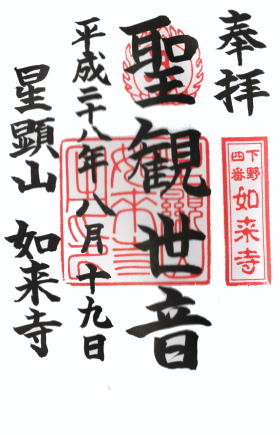 奉拝
下野
四番
如来寺
聖観世音
平成二十八年八月十九日
星顕山 如来寺